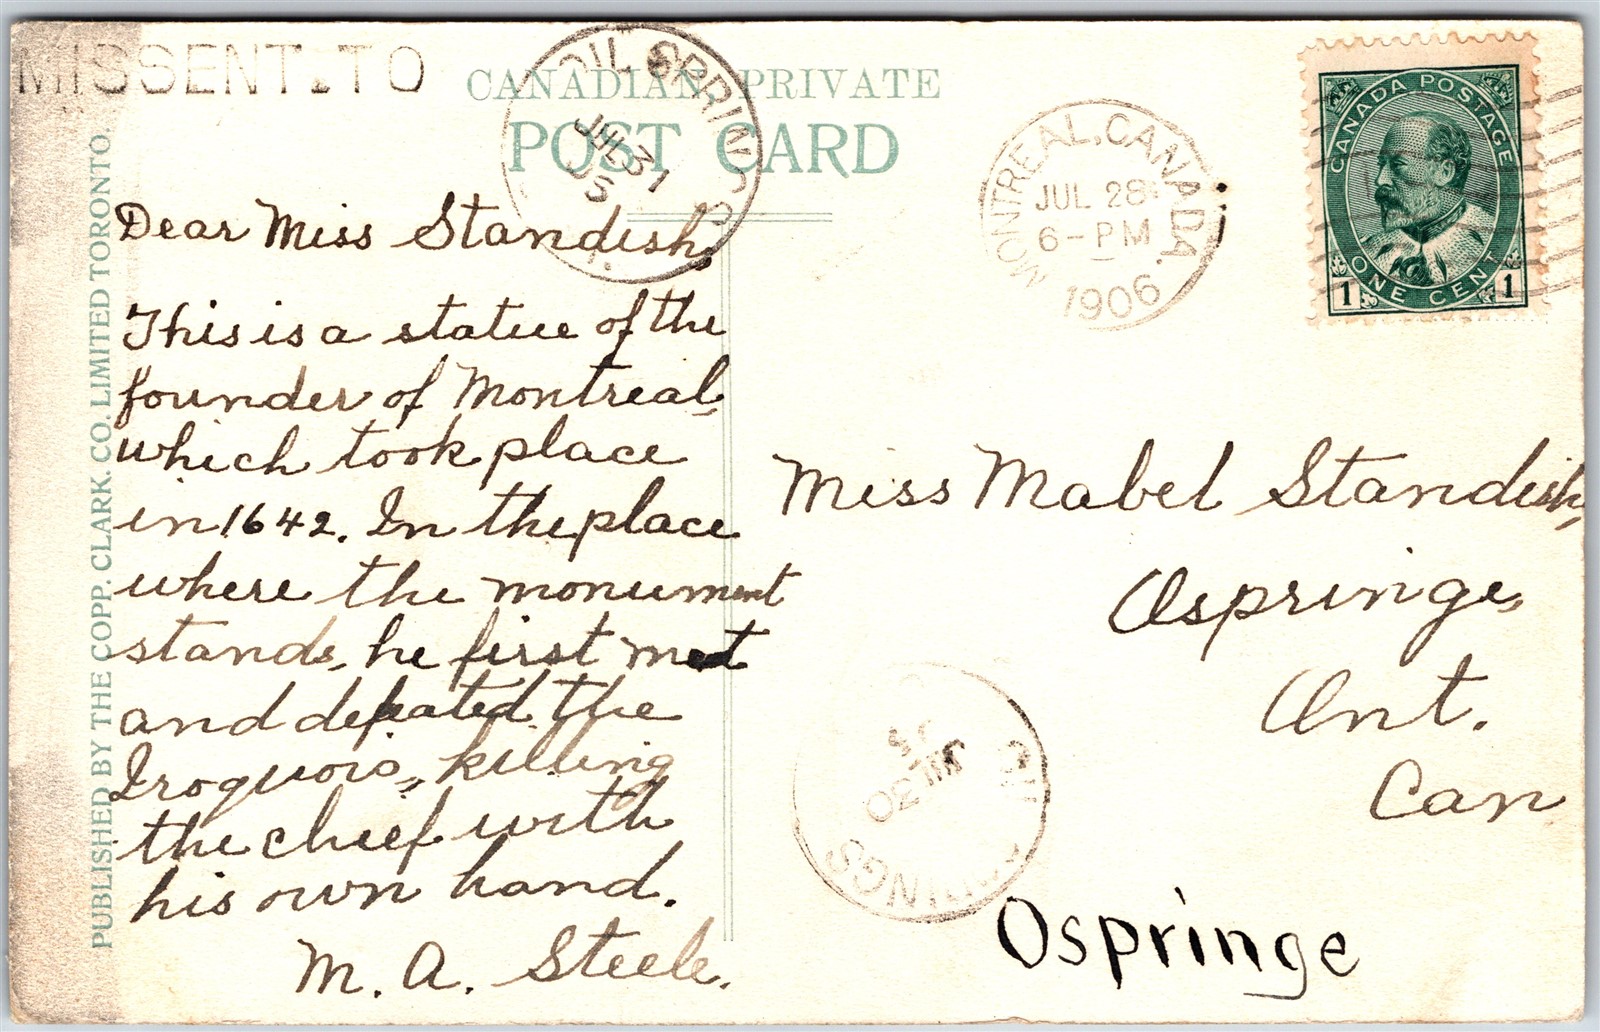 MISSENT.TO
CANADIAN PRIVATE
POST CARD
OIL SPRINGS
JUL 31
MONTREAL, CANADA.
JUL 28
6-PM
1906
CANADA POSTAGE
ONE CENT
1 1
PUBLISHED BY THE COPP. CLARK. CO. LIMITED TORONTO.
Dear Miss Standish,
This is a statue of the
founder of Montreal,
which took place
in 1642. In the place
where the monument
stands, he first met
and defeated the
Iroquois, killing
the chief with
his own hand.
M. A. Steele.
Miss Mabel Standish,
Ospringe,
Ont.
Can
JUL 30
Ospringe